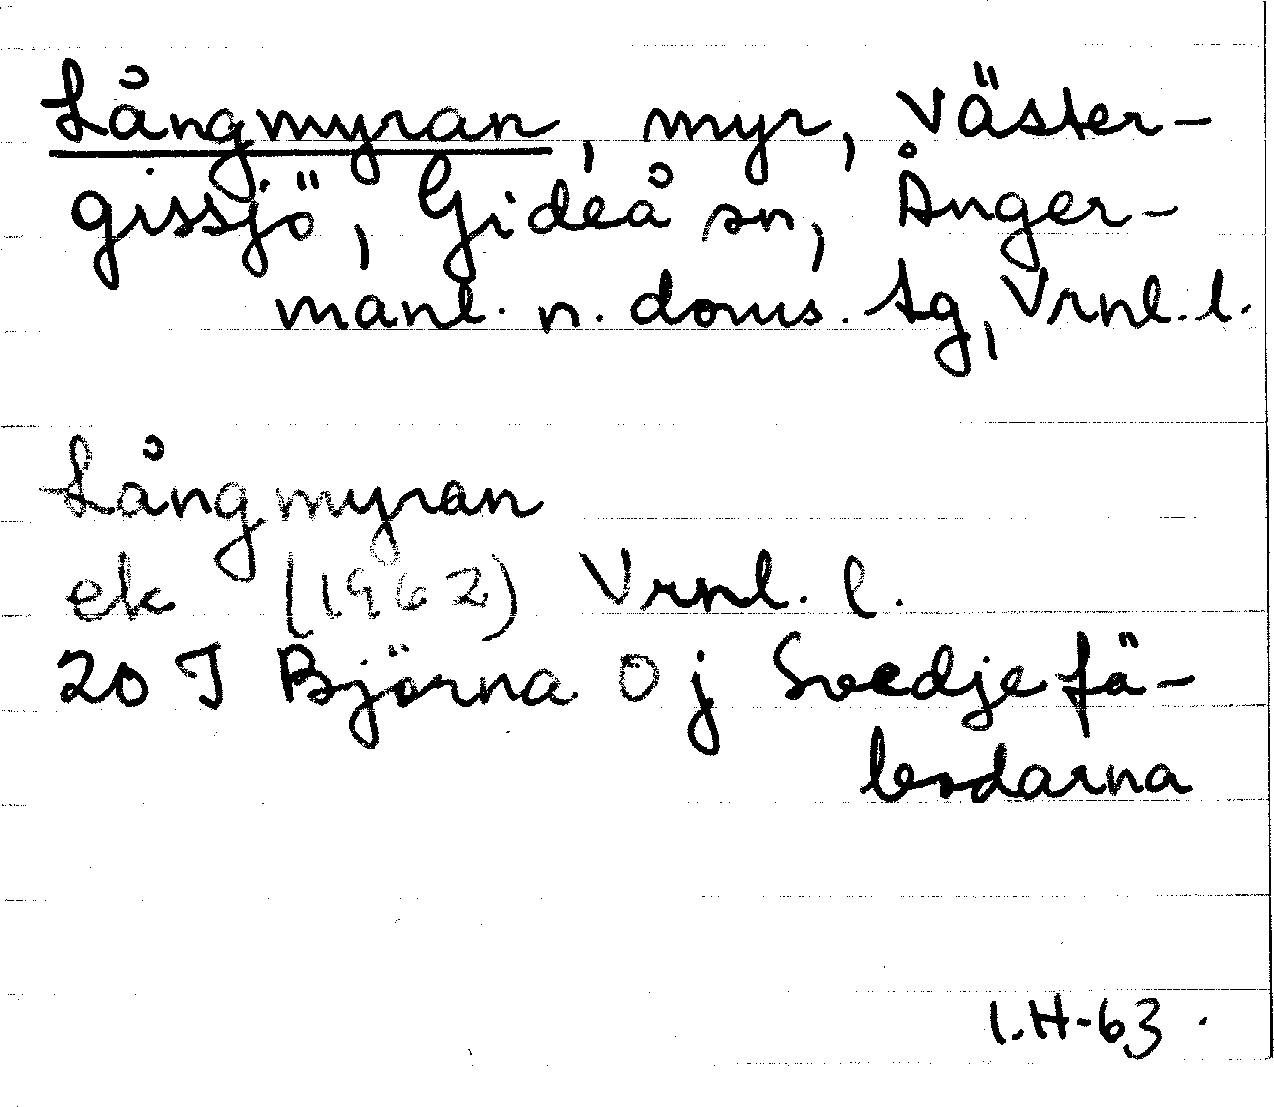 Långmyran, myr, Väster-
gissjö, Gideå sn, Ånger-
manl. n. doms. tg, Vrnl. l.
Långmyran
ek (1962) Vrnl. l.
20 J Björna 0 j Svedjefä-
bodarna
I.H-63.